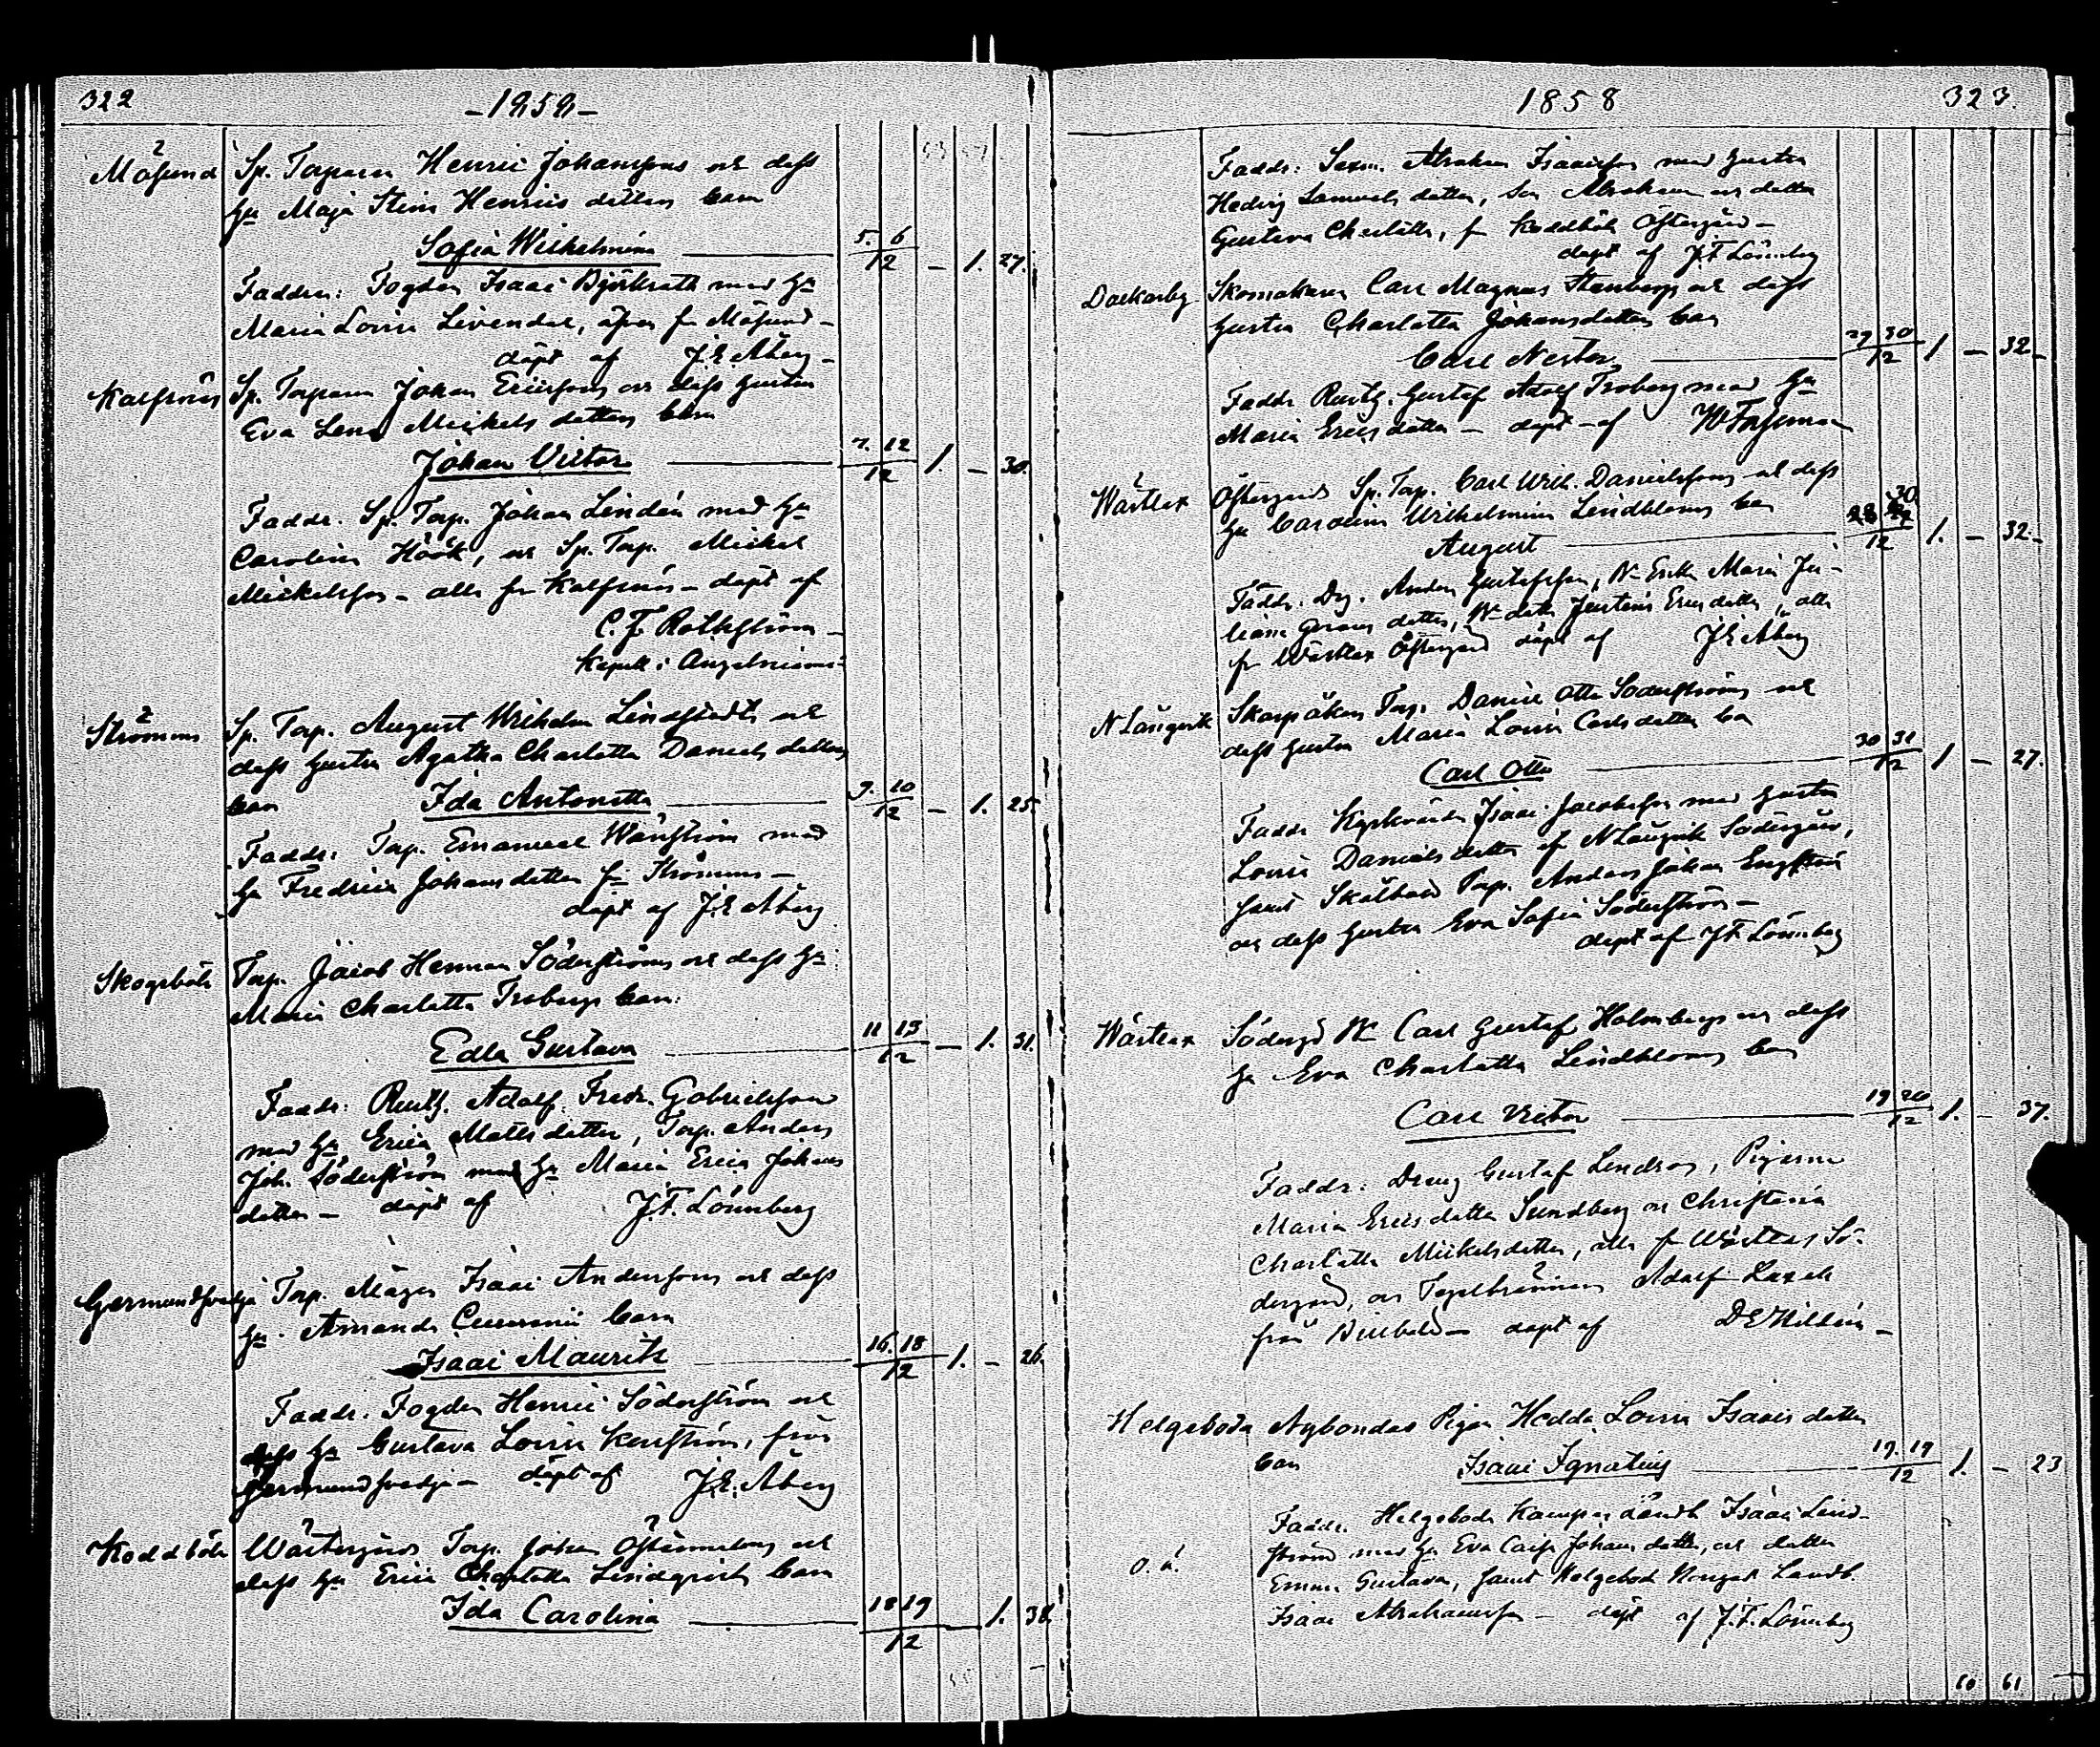 322
-1858-
Måsund Sp. Torparen Henric Johanssons och dess
hu Maja Stina Henrics dotters barn
Sofia Wilhelmina 5. 6 12 - 1. 27.
Faddrar: Fogden Isaac Björkroth med hu
Maria Lovisa Livendal, äfven fr Måsund -
döpt af J.E. Åberg -
Kalfsnäs Sp. Torparen Johan Ericssons och dess hustru
Eva Lena Mickels dotters barn
Johan Victor 7. 12 12 1. - 30.
Faddr. Sp. Torp. Johan Lindén med hu
Carolina Höök, och Sp. Torp. Mickel
Mickelsson - alla fr Kalfsnäs - döpt af
C.F. Rothström -
Kapell. i Angelniemi
Strömma Sp. Torp. August Wilhelm Lindstedts och
dess hustru Agatha Charlotta Daniels dotters
barn Ida Antonetta 9. 10 12 - 1. 25.
Faddr. Torp. Emanuel Wänström med
hu Fredrica Johansdotter fr Strömma -
döpt af J.E. Åberg
Skogsböle Torp. Jacob Herman Söderströms och dess hu
Maria Charlotta Frobergs barn:
Edla Gustava 11 13 12 - 1. 31.
Faddr: Rusth. Adolf Fredr. Gabrielsson
med hu Erica Matts dotter, Torp. Anders
Joh. Söderström med hu Maria Erica Johans
dotter - döpt af J.F. Lönnberg
Germundsvedja Torp. Mågen Isaac Anderssons och dess
hu. Amanda barn
Isaac Mauritz 16. 18 12 1. - 26.
Faddr. Fogden Henric Söderström och
dess hu Gustava Lovisa, från
Germundsvedja - döpt af J.E. Åberg
Koddböle Wästergårds Torp. Johan och
dess hu Erica Charlotta Lindqvists barn
Ida Carolina 18 19 12 1. 38.
1858
323.
Faddr: Sexm. Abraham Isaacsson med hustru
Hedvig Samuelsdotter, Son Abraham och dotter
Gustava Charlotta, fr Koddböle Östergård -
döpt af J.F. Lönnberg
Dackarby Skomakaren Carl Magnus Stenbergs och dess
hustru Charlotta Johansdotters barn
Carl Nestor 29 30 12 1 - 32
Faddr Rusth. Gustaf Adolf Froberg med hu
Maria Ericsdotter - döpt af
Wärtlax Östergårds Sp. Torp. Carl Wilh. Danielssons och dess
hu Carolina Wilhelmina Lindbloms barn
August 12 1. - 32.
Faddr. Drg. Anders Gustafsson, Maria Ju-
liana dotter, Justina Ericsdotter, alla
fr Wärtlax Östergård döpt af J.E. Åberg
N Långvik Skarpåkers Torp. Daniel Otto Söderströms och
dess hustru Maria Lovisa Carlsdotters barn
Carl Otto 30 31 12 1 - 27.
Faddr Kyrkvärden Isaac Jacobsson med hustru
Lovisa Danielsdotter af N Långvik Södergård,
samt Torp. Anders Johan Engström
och dess hustru Eva Sofia Söderström -
döpt af J.F. Lönnberg
Wärtlax Södergd Carl Gustaf Holmbergs och dess
hu Eva Charlotta Lindbloms barn
Carl Victor 19 20 12 1. - 37.
Faddr: Dreng Gustaf Lindros, Pigorna
Maria Ericsdotter Sundberg och Christina
Charlotta Mickelsdotter, alla fr Wärtlax Sö-
dergård, och Tegelbrännaren Adolf Laxell
från - döpt af D E Hildén -
Helgeboda Nybondas Pigan Hedda Lovisa Isaacs dotters
barn Isaac Ignatius 19. 19 12 1. - 23
Faddr. Helgeboda Isaac Lind-
ström med hu Eva Caisa Johansdotter, och dotter
o. ä. Emma Gustava, samt Helgeboda Landb.
Isaac Abrahamsson - döpt af J.F. Lönnberg
60 61